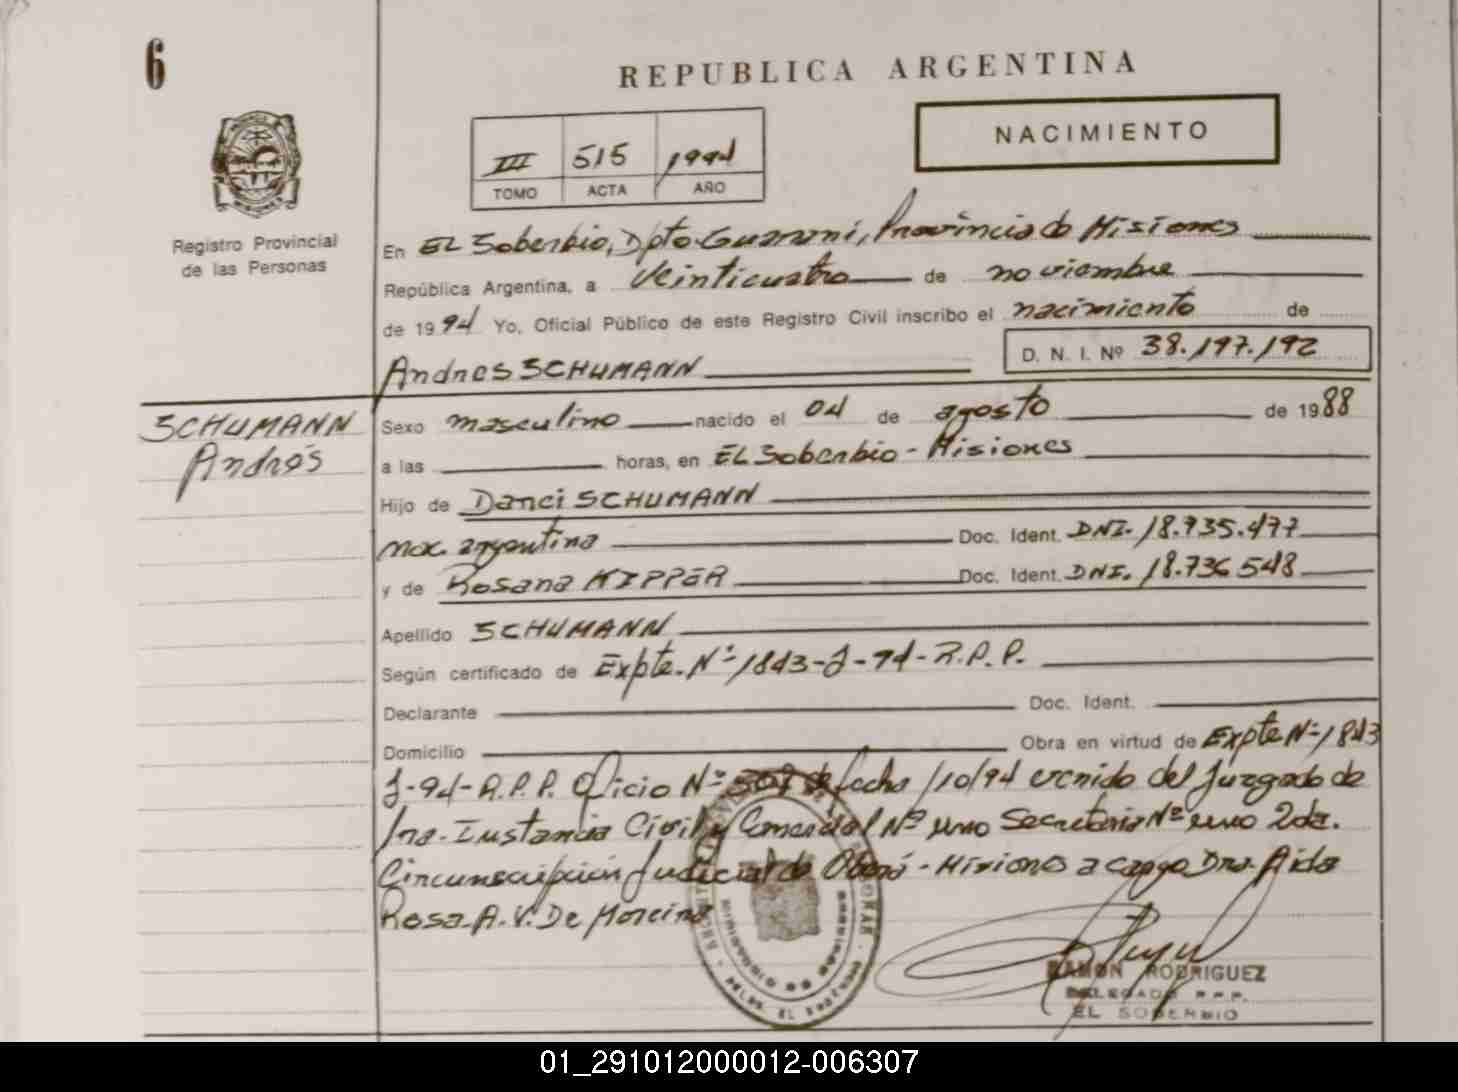 6
REPUBLICA ARGENTINA
NACIMIENTO
III 515 1994
TOMO ACTA AÑO
Registro Provincial
de las Personas
En EL Soberbio, Dpto. Guaraní, Provincia de Misiones
República Argentina, a Veinticuatro de noviembre
de 1994 Yo, Oficial Público de este Registro Civil inscribo el nacimiento de
Andres SCHUMANN D. N. I. Nº 38.197.192
SCHUMANN
Andrés
Sexo masculino nacido el 04 de agosto de 1988
a las horas, en EL Soberbio - Misiones
Hijo de Danci SCHUMANN
nac. argentina Doc. Ident. DNI. 18.735.477
y de Rosana KIPPER Doc. Ident. DNI. 18.736548
Apellido SCHUMANN
Según certificado de Expte. Nº 1843-J-94-R.P.P.
Declarante Doc. Ident.
Domicilio Obra en virtud de Expte Nº 1843
J-94-R.P.P. Oficio Nº de fecha /10/94 venido del Juzgado de
1ra. Instancia Civil y Comercial Nº uno Secretaria Nº uno 2da.
Circunscripción Judicial de Oberá - Misiones a cargo Dra. Aida
Rosa A. V. De Moreira
RAMON RODRIGUEZ
DELEGADO R.P.P.
EL SOBERBIO
01_291012000012-006307